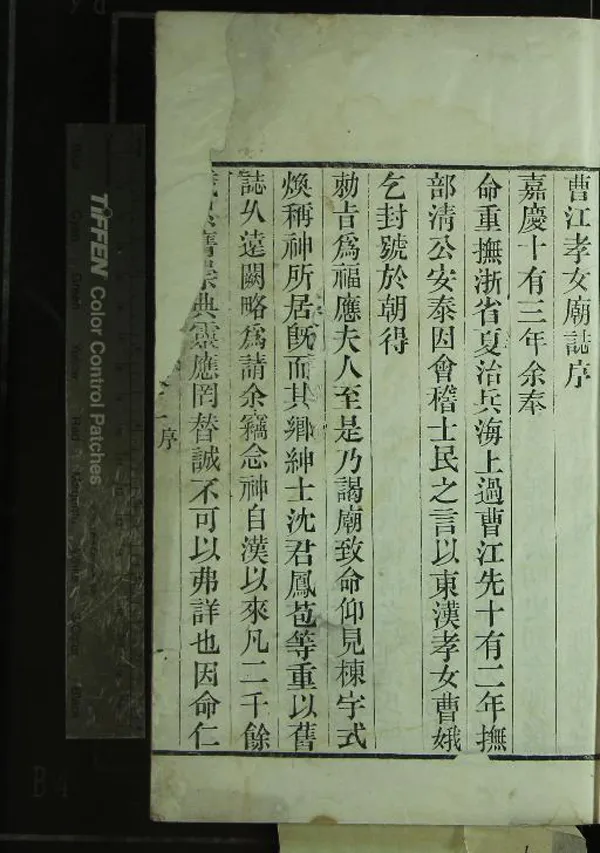 曹江孝女廟誌序
嘉慶十有三年余奉
命重撫浙省夏治兵海上過曹江先十有二年撫
部清公安泰因會稽士民之言以東漢孝女曹娥
乞封號於朝得
勅吉爲福應夫人至是乃謁廟致命仰見棟宇式
煥稱神所居旣而其鄉紳士沈君鳳苞等重以舊
誌乆遠闕略爲請余竊念神自漢以來凡二千餘
崇典靈應罔替誠不可以弗詳也因命仁
序
TIFFEN Color Control Patches